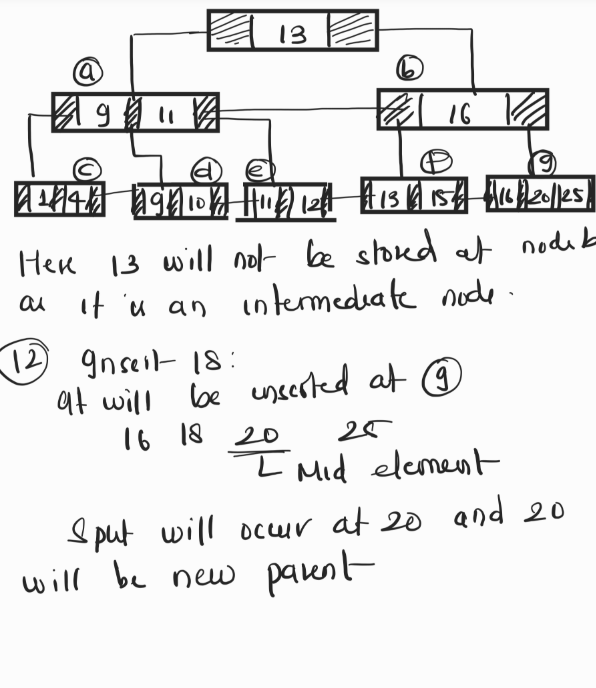 13
a b
9 11 16
c d e f g
1 4 9 10 11 12 13 15 16 20 25
Here 13 will not be stored at node b
as it is an intermediate node.
12 Insert 18:
It will be inserted at g
16 18 20 25
Mid element
Split will occur at 20 and 20
will be new parent